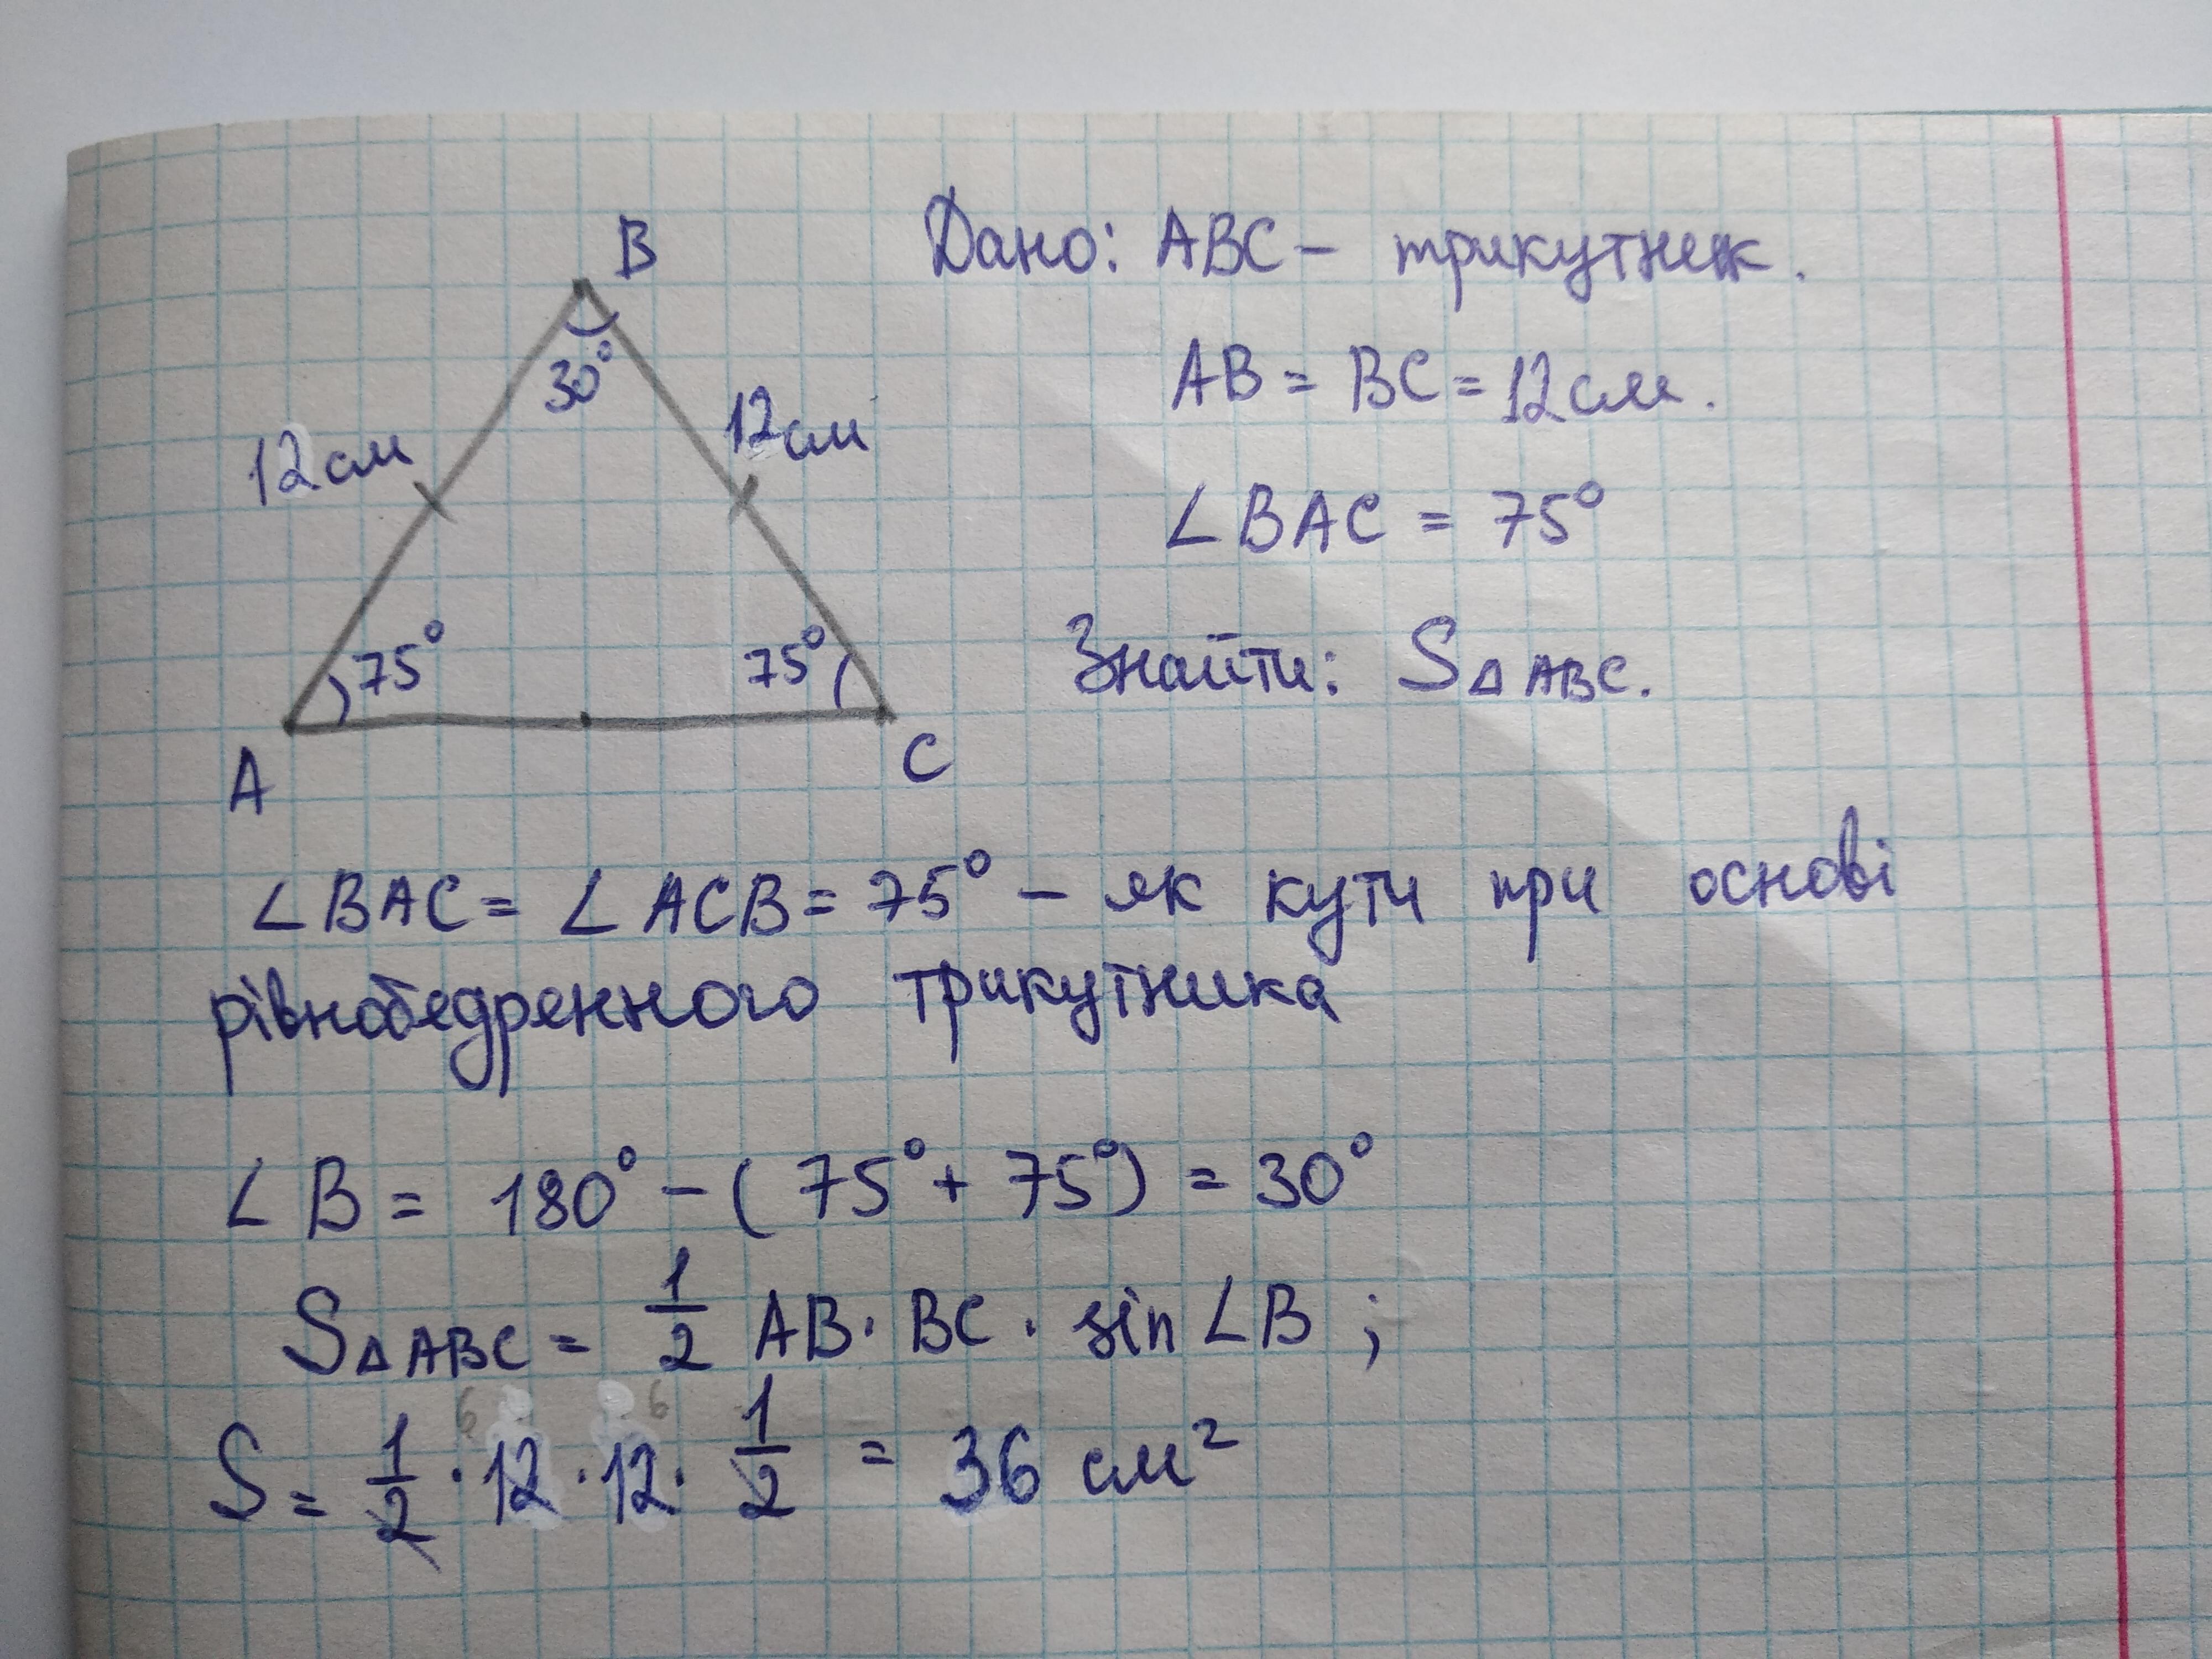 B
30°
12 см
12 см
75°
75°
A
C
Дано: ABC – трикутник.
AB = BC = 12 см.
∠BAC = 75°
Знайти: S△ABC.
∠BAC = ∠ACB = 75° – як кути при основі
рівнобедренного трикутника
∠B = 180° – (75° + 75°) = 30°
S△ABC = 1/2 AB · BC · sin∠B ;
6 6
S = 1/2 · 12 · 12 · 1/2 = 36 см²